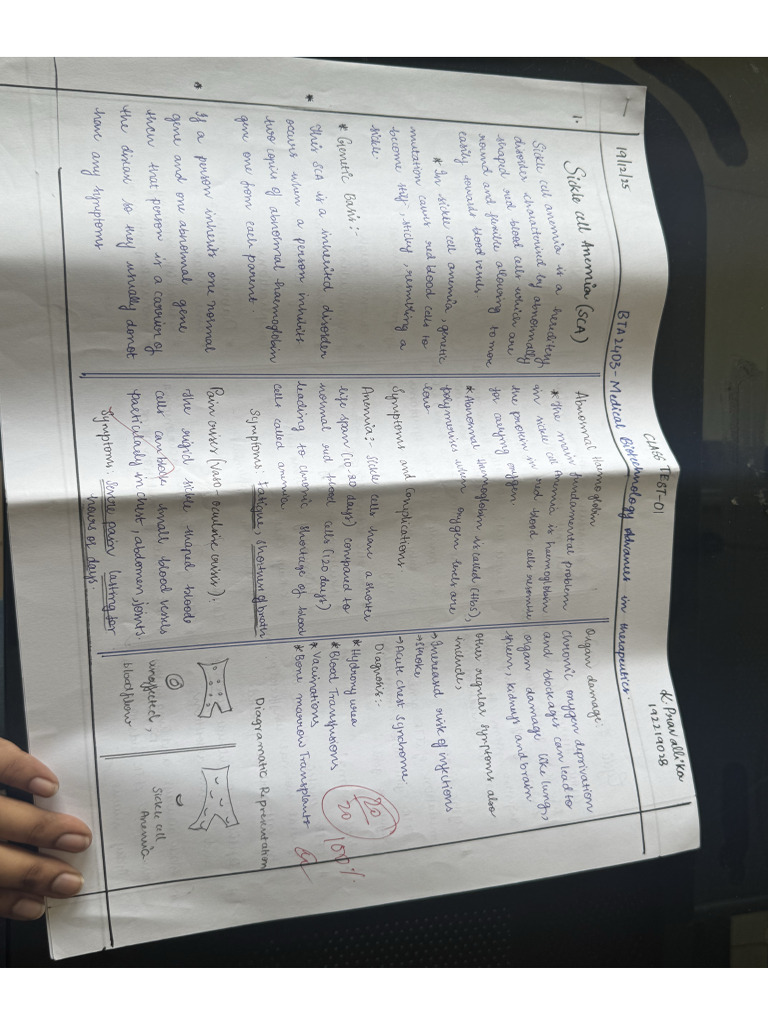 K. Pravallika
192219028
CLASS TEST-01
19/12/25
BTA2403 - Medical Biotechnology advances in therapeutics.
1.
Sickle cell Anemia (SCA)
Sickle cell anemia is a hereditary
disorder characterised by abnormally
shaped red blood cells which are
round and flexible allowing to move
easily towards blood vessels
* In sickle cell anemia, genetic
mutation causes red blood cells to
become stiff, sticky, resembling a
sickle
* Genetic Basis:-
* This SCA is a inherited disorder
occurs when a person inhibits
two copies of abnormal haemoglobin
gene one from each parent.
* If a person inherits one normal
gene and one abnormal gene
then that person is a carrier of
the disease so they usually donot
have any symptoms
Abnormal Haemoglobin
* The main fundamental problem
in sickle cell Anemia is haemoglobin
the protein in red blood cells
for carrying oxygen.
* Abnormal Hemoglobin is called (HbS),
polymerises when oxygen levels are
low
Symptoms and Complications
Anemia:- Sickle cells have a shorter
life span (10-20 days) compared to
normal red blood cells (120 days)
leading to chronic shortage of blood
cells called anemia
Symptoms: fatigue, shortness of breath
Pain crises (Vaso-occulsive crisis):
The rigid sickle shaped blood
cells can small blood vessels
particularly in chest, abdomen, joints.
Symptoms: Severe pain lasting for
hours or days.
Organ damage:
Chronic oxygen deprivation
and blockages can lead to
organ damage like lungs,
spleen, kidneys and brain
other regular symptoms also
includes,
→ Increased risk of infections
→ stroke
→ Acute chest Syndrome
Diagnosis:-
* Hydroxy urea
* Blood Transfusions
* Vaccinations
* Bone marrow Transplants
20/20
100%
Diagramatic Representation
unaffected,
bloodflow
Sickle cell
Anemia